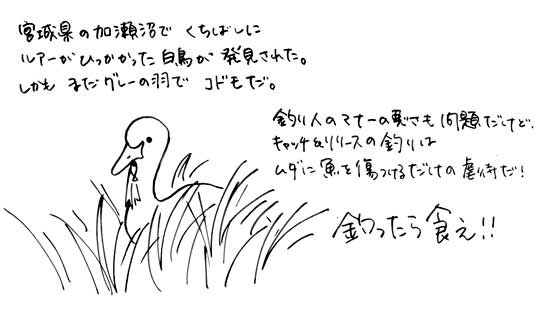 宮城県の加瀬沼で くちばしに
ルアーがひっかかった白鳥が 発見された。
しかも まだグレーの羽で コドモだ。
釣り人のマナーの悪さも 問題だけど、
キャッチ&リリースの釣りは
ムダに魚を傷つけるだけの虐待だ!
釣ったら食え!!